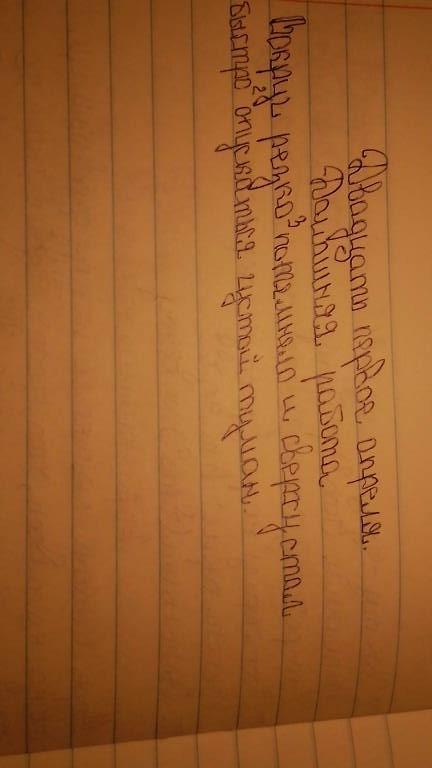 Двадцать первое апреля.
Домашняя работа
Вокруг резко потемнело и сверху стал
быстро опускаться густой туман.